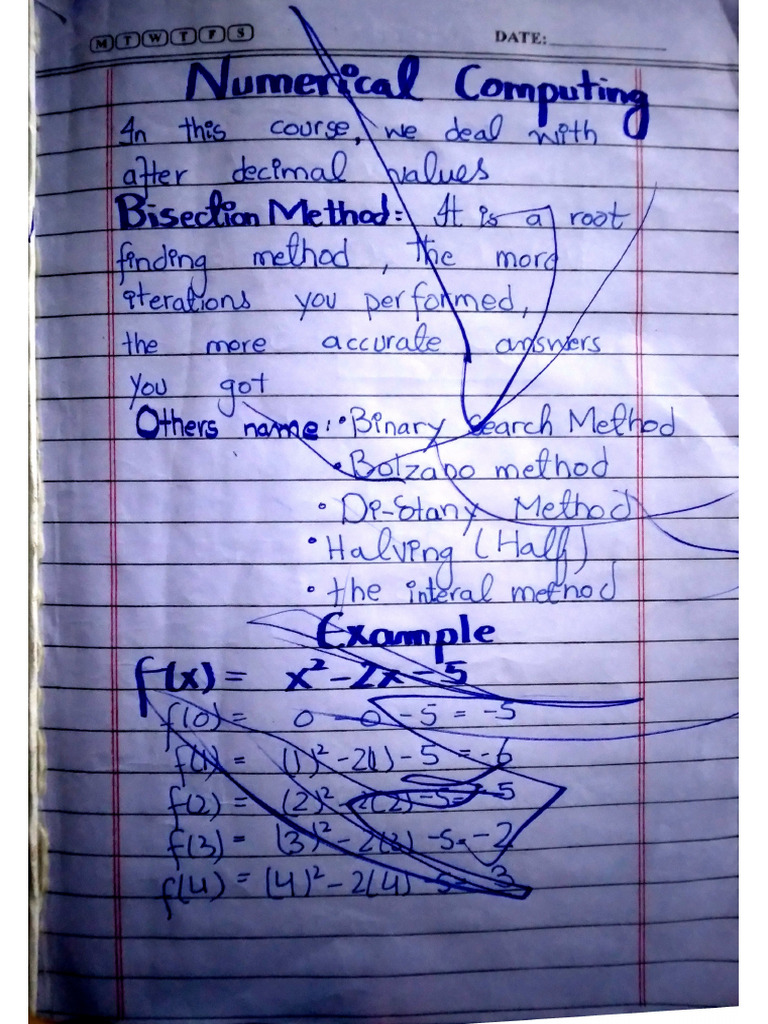 M T W T F S DATE:
Numerical Computing
In this course, we deal with
after decimal values
Bisection Method:- It is a root
finding method, the more
iterations you performed,
the more accurate answers
you got
Others name:• Binary Search Method
• Bolzano method
• Di-Stany Method
• Halving (Half)
• the interal method
Example
f(x) = x² - 2x - 5
f(0) = 0 - 0 - 5 = -5
f(1) = (1)² - 2(1) - 5 = -6
f(2) = (2)² - 2(2) - 5 = -5
f(3) = (3)² - 2(3) - 5 = -2
f(4) = (4)² - 2(4) - 5 = 3